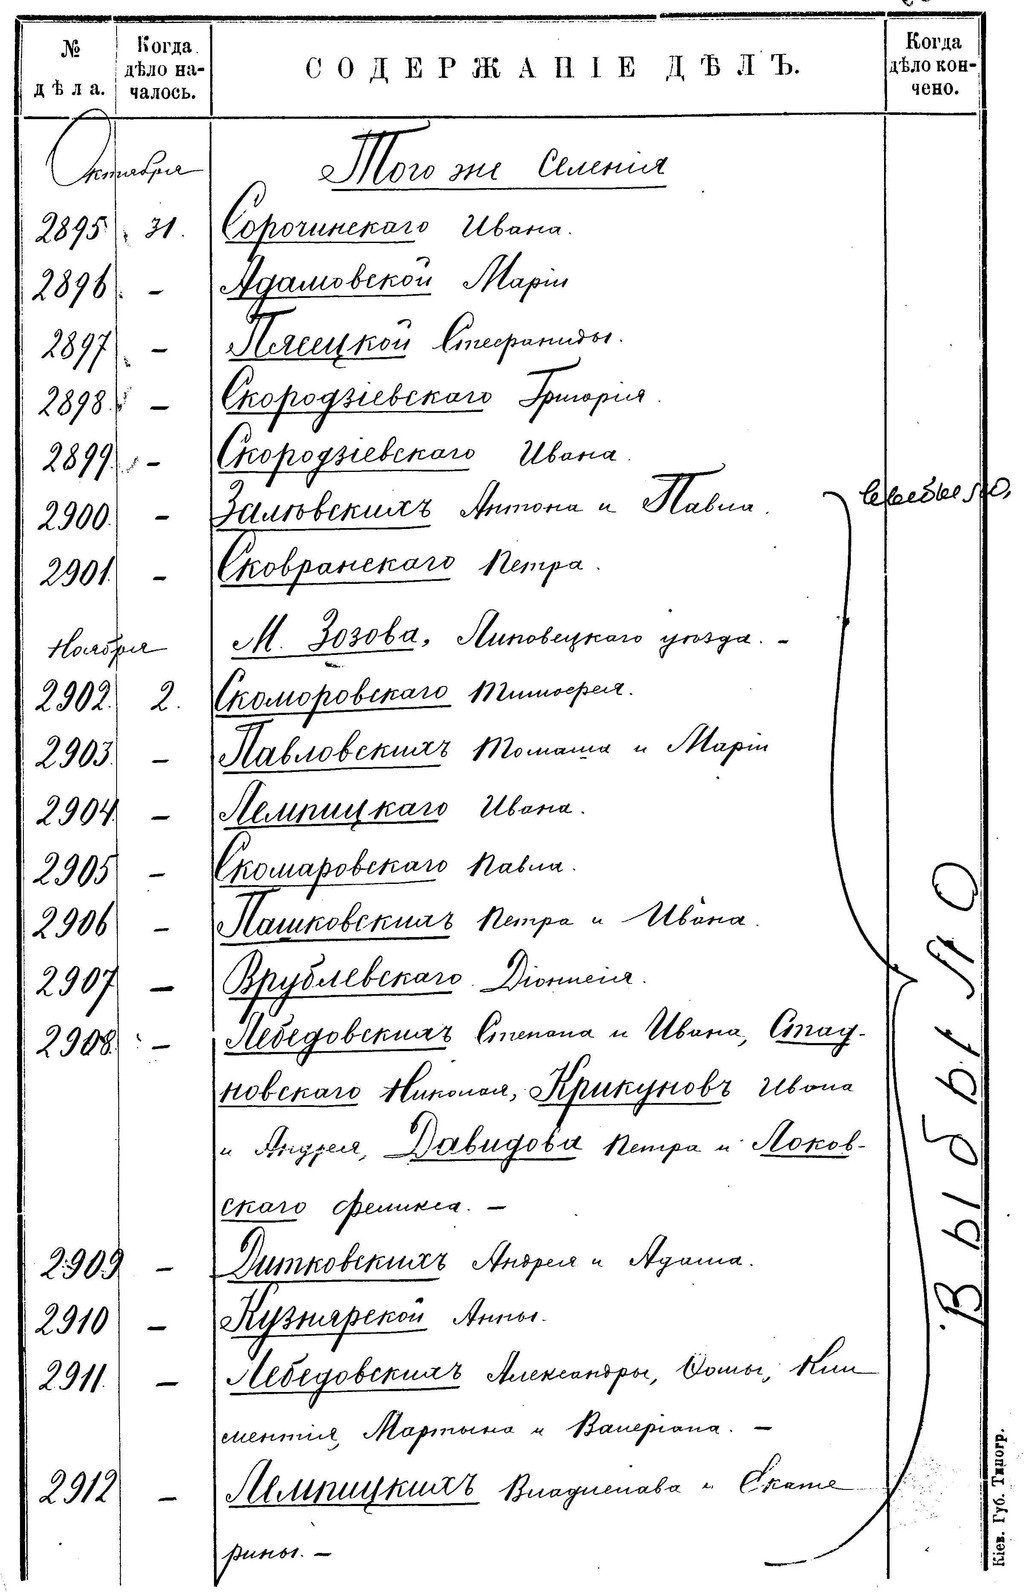 № дѣла. Когда дѣло началось. СОДЕРЖАНІЕ ДѢЛЪ. Когда дѣло кончено.
Октября Того же Селенія
2895 31. Сорочинскаго Ивана.
2896 - Адамовской Маріи
2897 - Пясецкой Стефаниды.
2898 - Скородзіевскаго Григорія.
2899 - Скородзіевскаго Ивана.
2900. - Залювскихъ Антона и Павла.
2901. - Сковранскаго Петра.
Ноября М. Зозова, Липовецкаго уѣзда. -
2902. 2. Скоморовскаго Тимофея.
2903. - Павловскихъ Томаша и Маріи
2904. - Лемпицкаго Ивана.
2905 - Скомаровскаго Павла.
2906 - Пашковскихъ Петра и Ивана.
2907 - Врублевскаго Діонисія.
2908. - Лебедовскихъ Степана и Ивана, Стад-
новскаго Николая, Крикуновъ Ивана
и Андрея, Давидова Петра и Локов-
скаго Феликса. -
2909 - Дитковскихъ Андрея и Адама.
2910 - Кузнярской Анны.
2911. - Лебедовскихъ Александры, Ѳомы, Кли
ментія, Мартына и Валеріана. -
2912 - Лемпицкихъ Владислава и Екате
рины. -
ВЫБЫЛО
Кіев. Губ. Типогр.